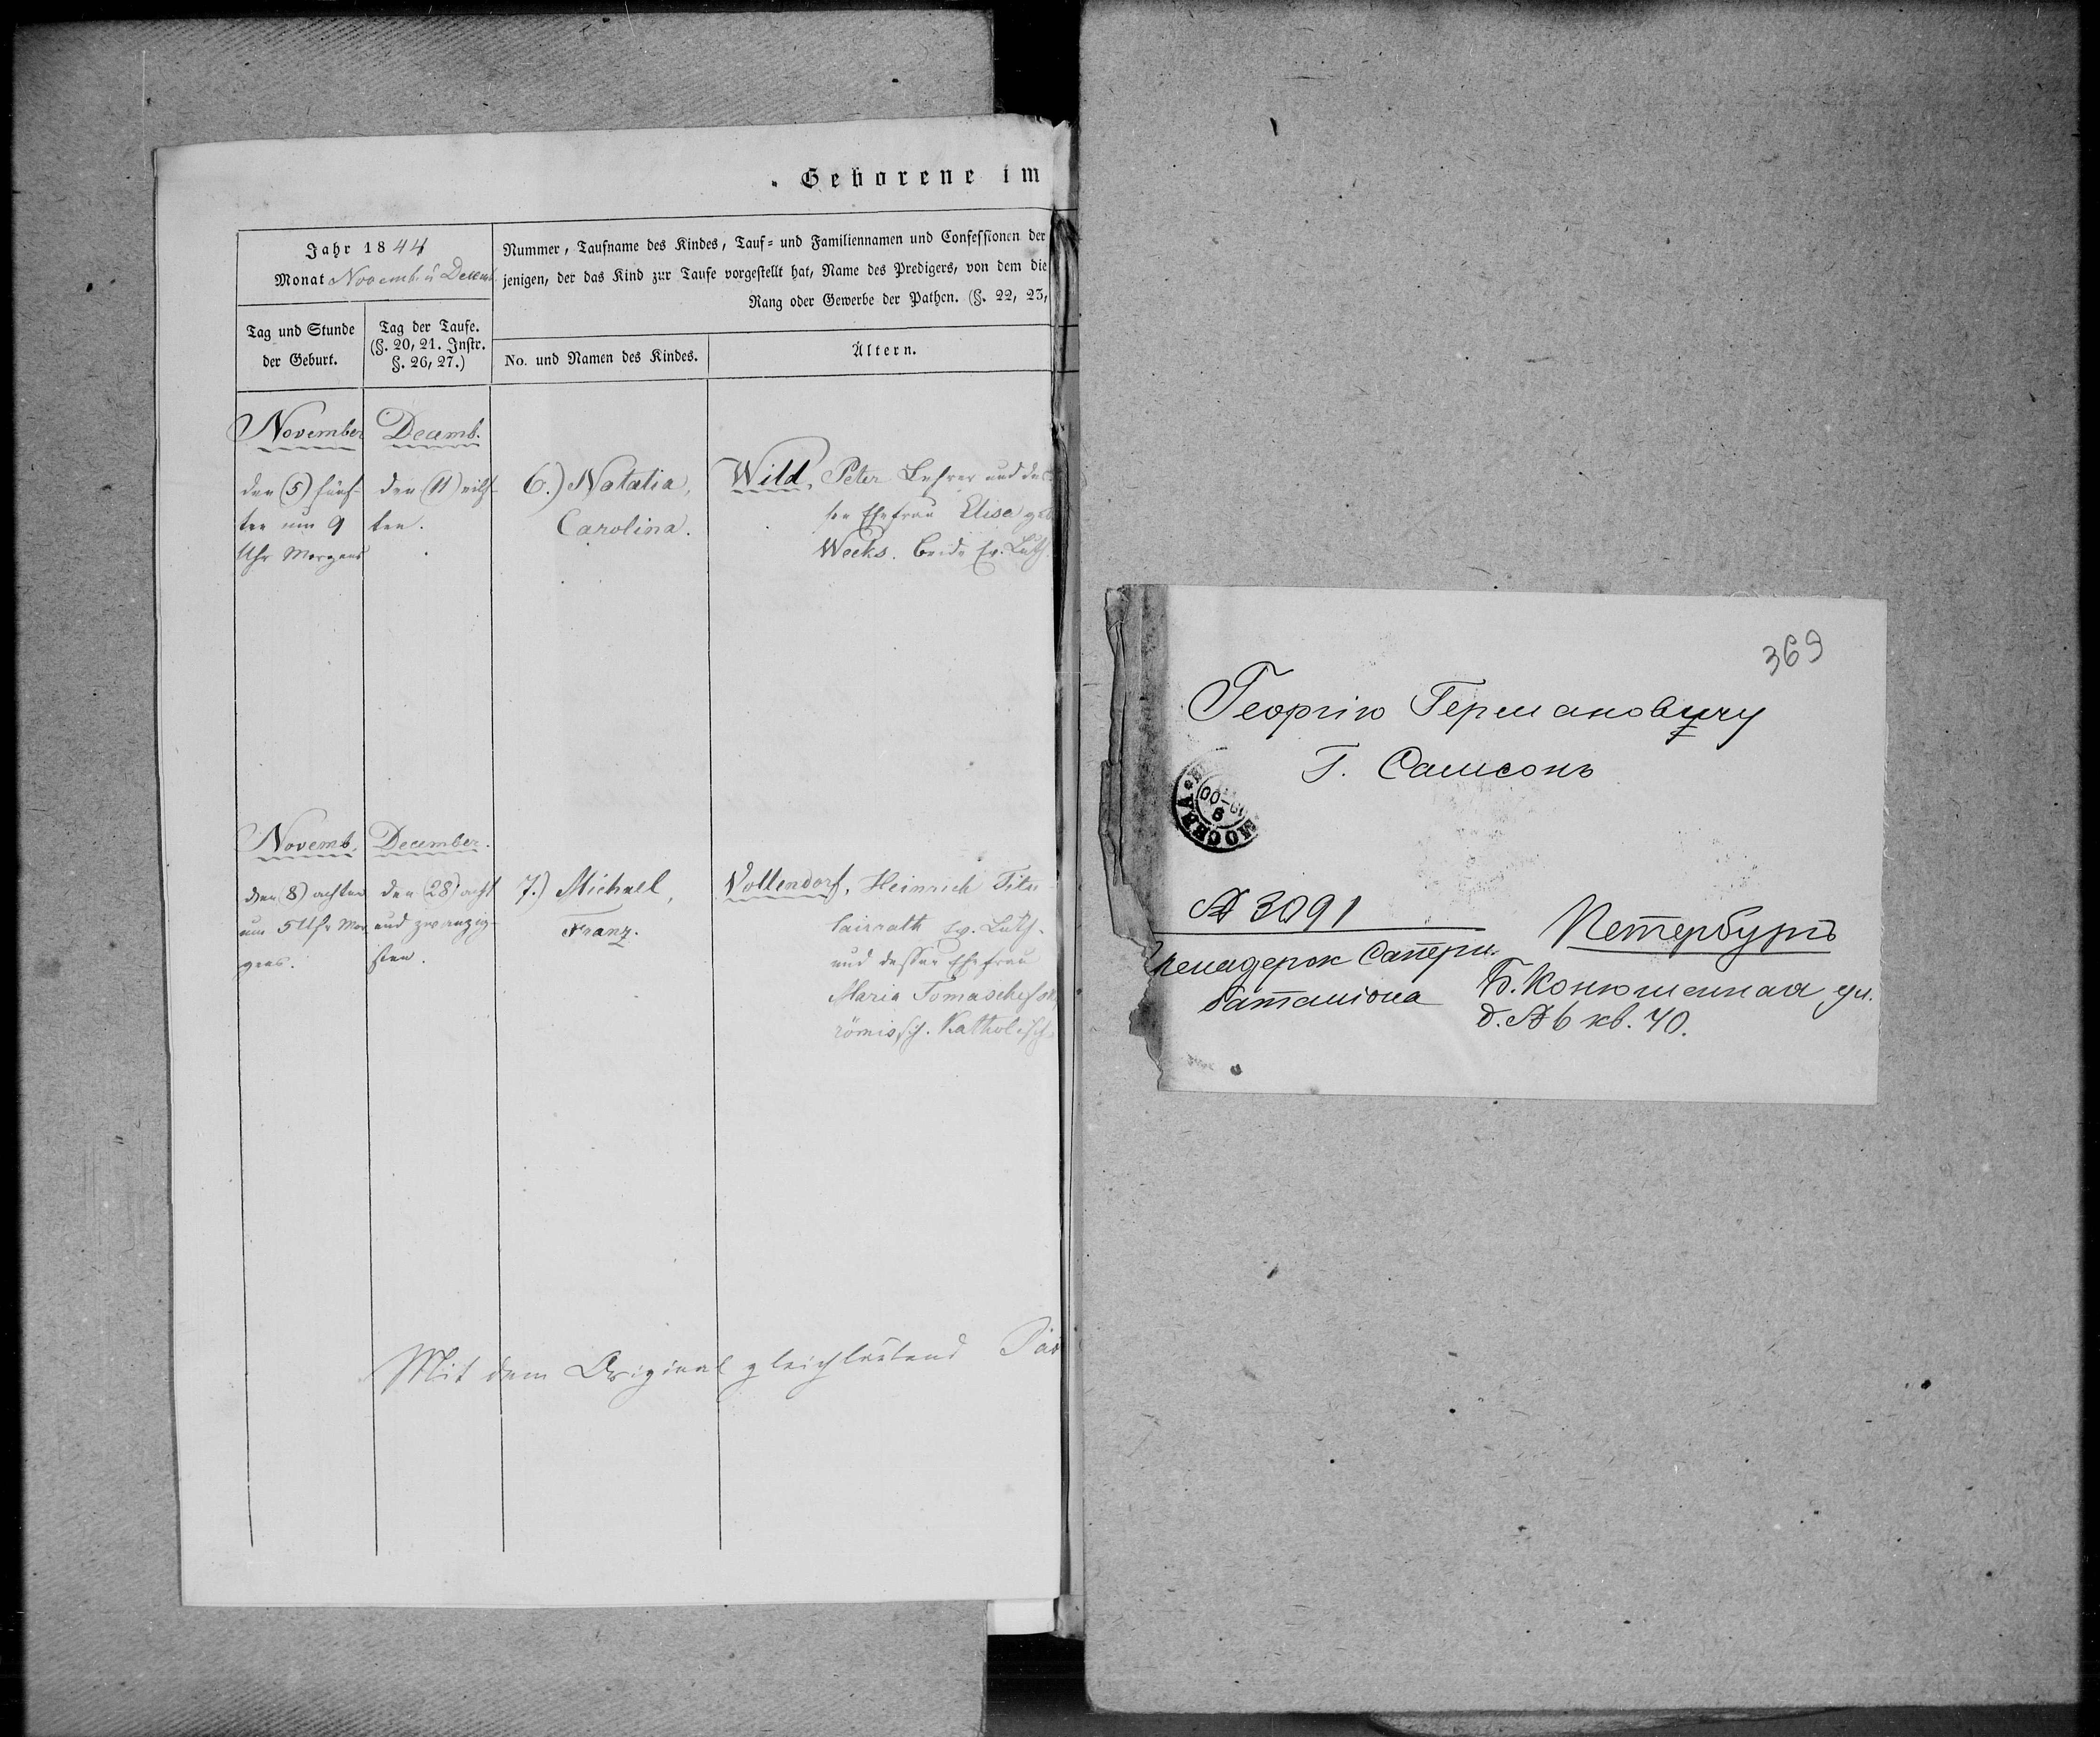 Geborene im
Jahr 1844
Monat Novemb. ü Decemb.
Nummer, Taufname des Kindes, Tauf- und Familiennamen und Confessionen der
jenigen, der das Kind zur Taufe vorgestellt hat, Name des Predigers, von dem die
Rang oder Gewerbe der Pathen. (§. 22, 23,
Tag und Stunde
der Geburt.
Tag der Taufe.
(§. 20, 21. Instr.
§. 26, 27.)
No. und Namen des Kindes.
Ältern.
November
den (5) fünf-
ten um 9
Uhr Morgens
Decemb.
den (11) eilf-
ten.
6.) Natalia,
Carolina.
Wild, Peter Lehrer und des
sen Ehefrau Elisa geb
Weeks. beide Ev. Luth.
Novemb.
den (8) achten
um 5 Uhr Mor
gens.
December.
den (28) acht
und zwanzig-
sten.
7.) Michael,
Franz.
Vollendorf, Heinrich Titu
lairrath Ev. Luth.
und dessen Ehefrau
Maria
römisch. Katholisch.
Mit dem Original gleichlautend
369
Георгію Германовичу
Г. Самсонъ
МОСКВА
№ 3091
Сапери.
баталіона
Петербургъ
Б. Конюшенная ул.
д. № 6 кв. 40.